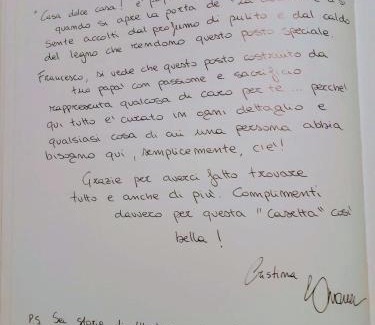 "Casa dolce casa! e' p
quando si apre la porta de
sente accolti dal profumo di pulito e dal caldo
del legno che rendono questo posto speciale.
Francesco, si vede che questo posto costruito da
tuo papa' con passione e sacrificio
rappresenta qualcosa di caro per te... perche'
qui tutto e' curato in ogni dettaglio e
qualsiasi cosa di cui una persona abbia
bisogno qui, semplicemente, c'e'!
Grazie per averci fatto trovare
tutto e anche di piu'. Complimenti
davvero per questa "Casetta" cosi'
bella!
Cristina
P.S. Sei